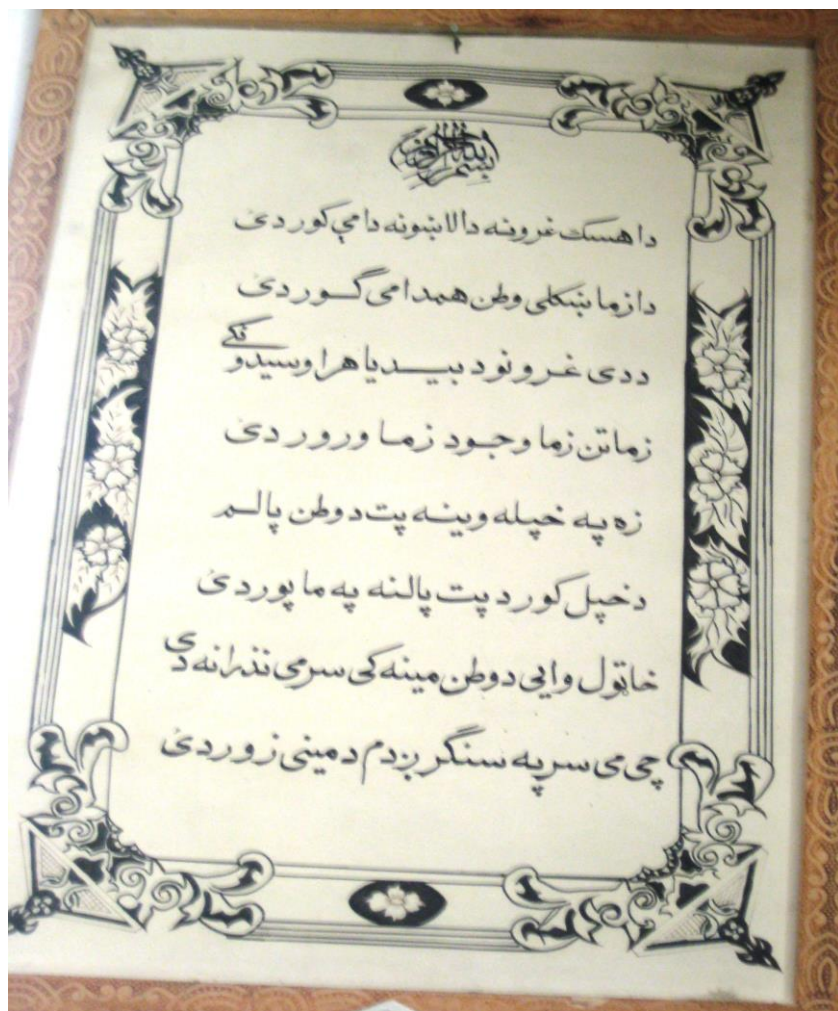 بسم الله الرحمن الرحیم
دا هسک غرونه دا لاښونه دا مې کور دئ
دا زما ښکلی وطن همدا می گور دئ
ددی غرونو د بیدیا هر اوسیدونکی
زما تن زما وجود زما ورور دئ
زه په خپله وینه پت د وطن پالم
د خپل کور د پت پالنه په ما پور دئ
خاتول وایی د وطن مینه کی سر می نذرانه دی
چی می سر په سنگر ږدم د مینی زور دئ